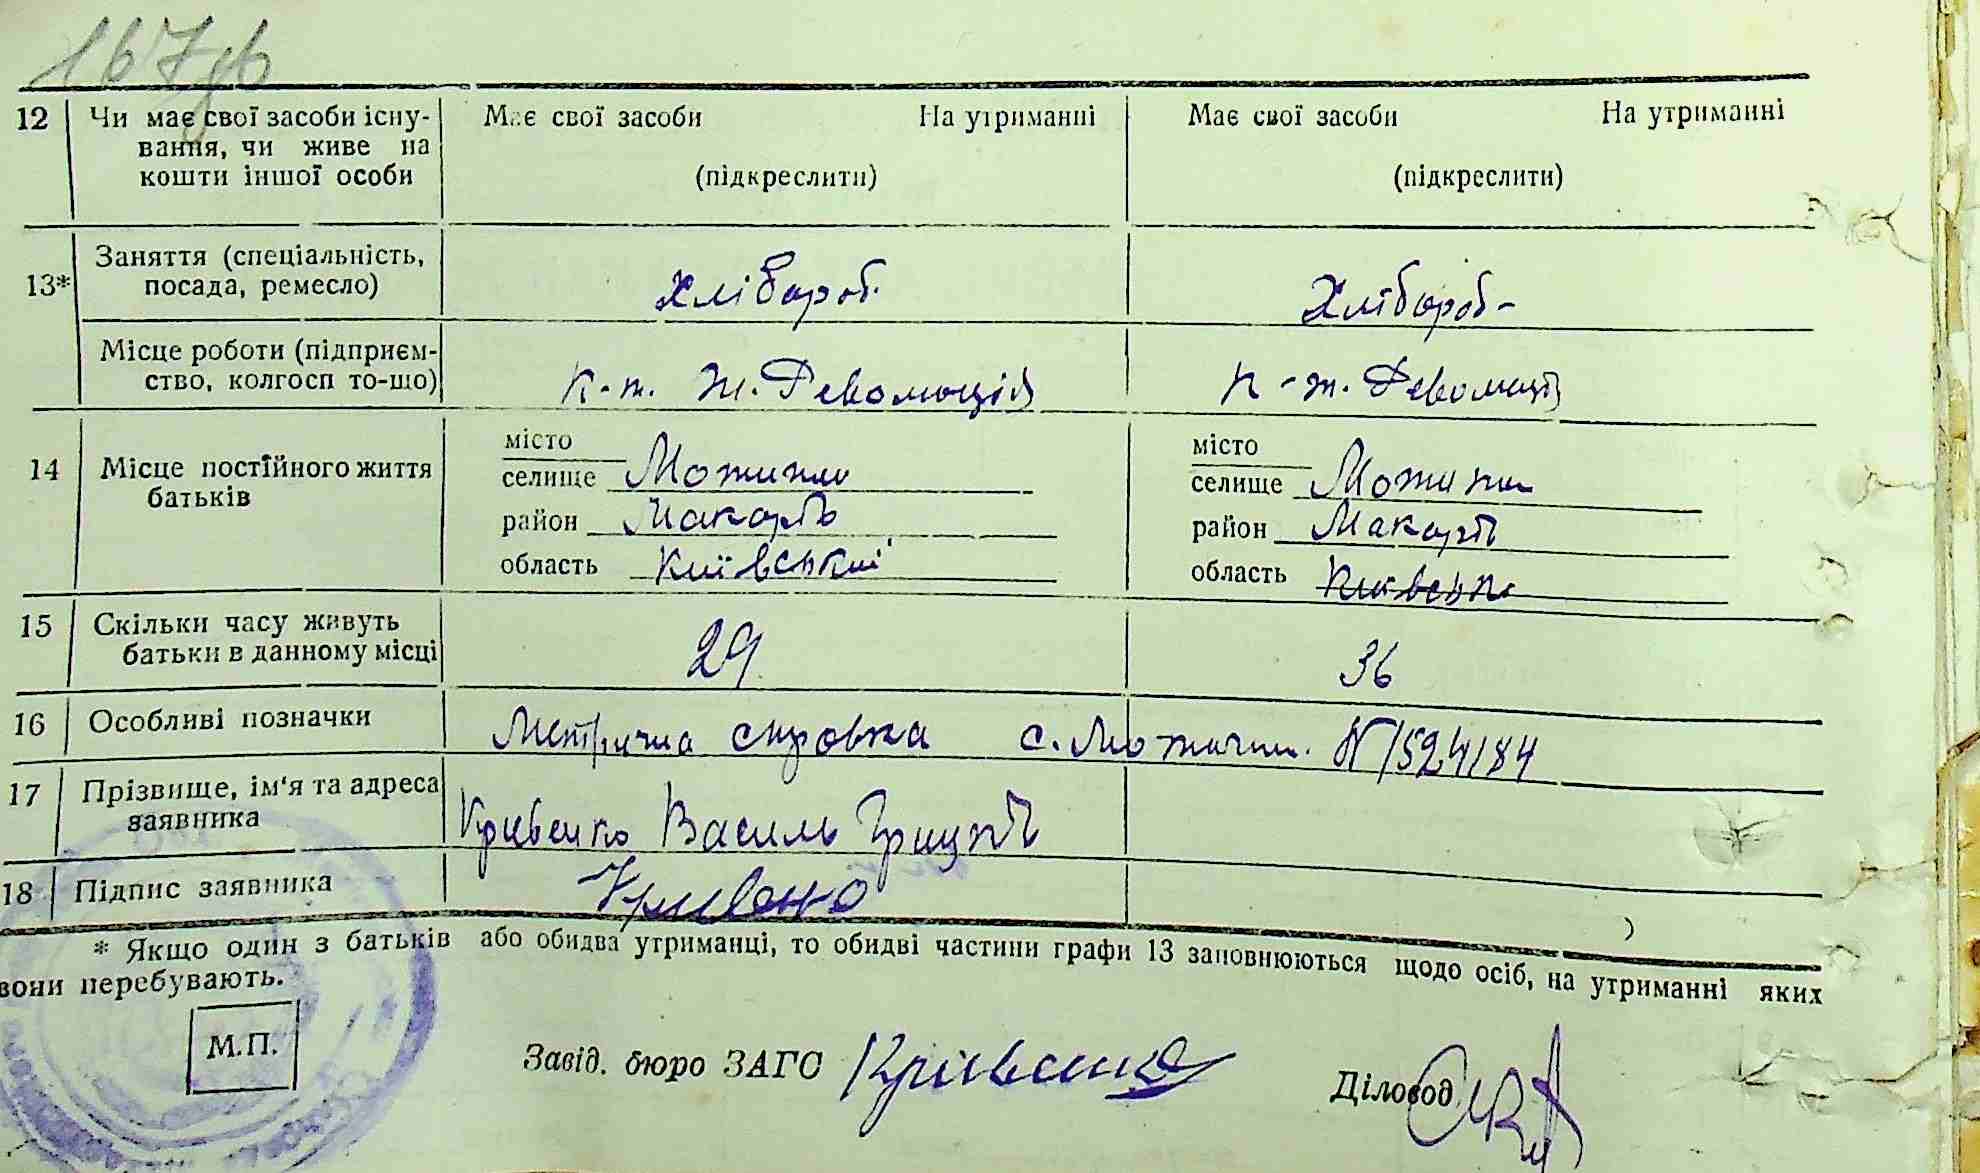 167зв
12 Чи має свої засоби існу- Має свої засоби На утриманні Має свої засоби На утриманні
вання, чи живе на
кошти іншої особи (підкреслити) (підкреслити)
13* Заняття (спеціальність,
посада, ремесло) Хлібороб Хлібороб
Місце роботи (підприєм-
ство, колгосп то-що) К-т. Ж. Революція К-т. Революції
14 Місце постійного життя
батьків
місто місто
селище Мотижин селище Мотижин
район Макарів район Макарів
область Київський область Київська
15 Скільки часу живуть
батьки в данному місці 29 36
16 Особливі позначки Метрична справка с. Мотижин. № 1524/84
17 Прізвище, ім'я та адреса
заявника Кривенко Василь Грицків
18 Підпис заявника Кривенко
* Якщо один з батьків або обидва утриманці, то обидві частини графи 13 заповнюються щодо осіб, на утриманні яких
вони перебувають.
М.П.
Завід. бюро ЗАГС Кривенко Діловод